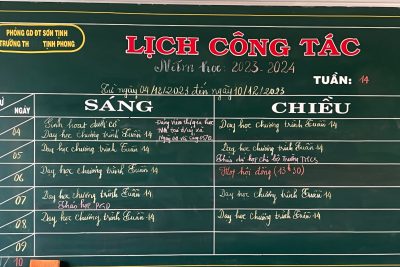 PHÒNG GD ĐT SƠN TỊNH
TRƯỜNG TH TỊNH PHONG
LỊCH CÔNG TÁC
Năm học: 2023-2024
TUẦN: 14
Từ ngày 04/12/2023 đến ngày 10/12/2023
NGÀY SÁNG CHIỀU
04 Sinh hoạt dưới cờ
Dạy học chương trình tuần 14
Dạy học chương trình tuần 14
05 Dạy học chương trình tuần 14
Dạy học chương trình tuần 14
06 Dạy học chương trình tuần 14
Họp hội đồng (13h30)
07 Dạy học chương trình tuần 14
Dạy học chương trình tuần 14
08 Dạy học chương trình tuần 14
Dạy học chương trình tuần 14
09
10